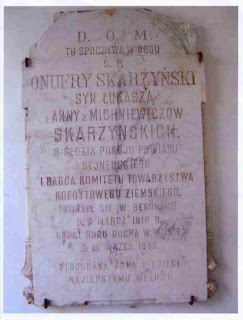 D. O. M.
TU SPOCZYWA W BOGU
Ś. P.
ONUFRY SKARŻYŃSKI
SYN ŁUKASZA
I ANNY Z MICHNIEWICZÓW
SKARŻYŃSKICH.
B. SĘDZIA POKOJU POWIATU
SEJNEŃSKIEGO
I RADCA KOMITETU TOWARZYSTWA
KREDYTOWEGO ZIEMSKIEGO.
URODZIŁ SIĘ W
D. MARCA
ODDAŁ BOGU DUCHA W
D. 15 WRZEŚ.
STROSKANA ŻONA I DZIECI
NAJLEPSZEMU MĘŻOWI